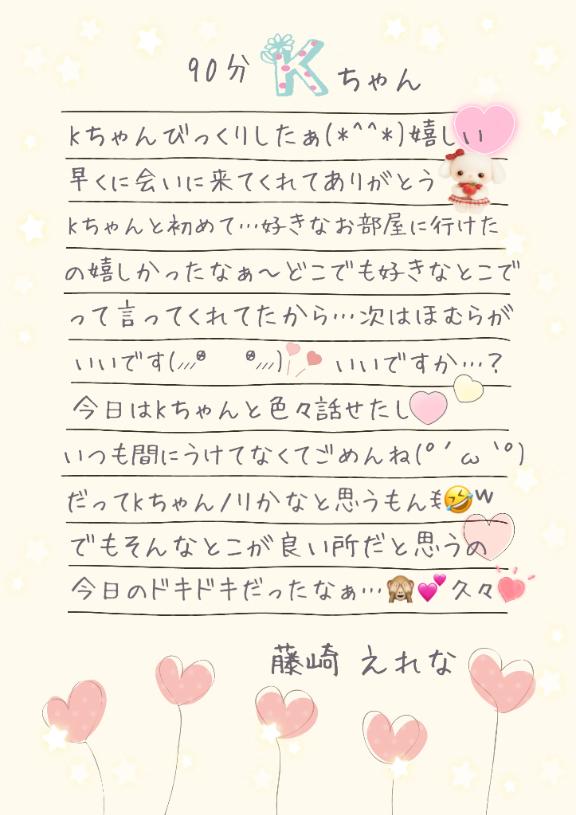 90分 Kちゃん
Kちゃんびっくりしたぁ(*^^*)嬉しい
早くに会いに来てくれてありがとう
Kちゃんと初めて…好きなお部屋に行けた
の嬉しかったなぁ〜どこでも好きなとこで
って言ってくれてたから…次はほむらが
いいです(⸝⸝⸝ᵒ̴̶̷ ᵒ̴̶̷⸝⸝⸝) いいですか…?
今日はKちゃんと色々話せたし
いつも間にうけてなくてごめんね(°´ω`°)
だってKちゃんノリかなと思うもん🤣w
でもそんなとこが良い所だと思うの
今日のドキドキだったなぁ…🙈💕久々
藤崎 えれな